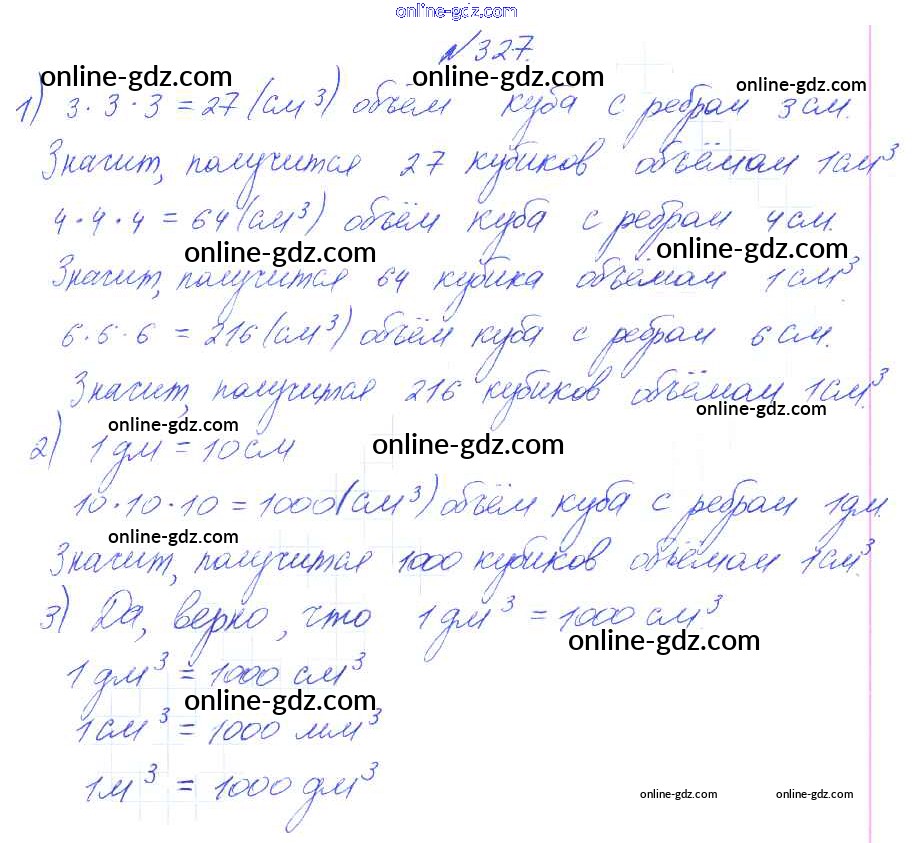 online-gdz.com
№327.
online-gdz.com online-gdz.com online-gdz.com
1) 3·3·3 = 27 (см³) объём куба с ребром 3 см.
Значит, получится 27 кубиков объёмом 1 см³
4·4·4 = 64 (см³) объём куба с ребром 4 см.
online-gdz.com online-gdz.com
Значит, получится 64 кубика объёмом 1 см³.
6·6·6 = 216 (см³) объём куба с ребром 6 см.
Значит, получится 216 кубиков объёмом 1 см³.
online-gdz.com online-gdz.com
2) 1 дм = 10 см
online-gdz.com
10·10·10 = 1000 (см³) объём куба с ребром 1 дм.
online-gdz.com
Значит, получится 1000 кубиков объёмом 1 см³.
3) Да, верно, что 1 дм³ = 1000 см³.
online-gdz.com
1 дм³ = 1000 см³
online-gdz.com
1 см³ = 1000 мм³
1 м³ = 1000 дм³
online-gdz.com online-gdz.com